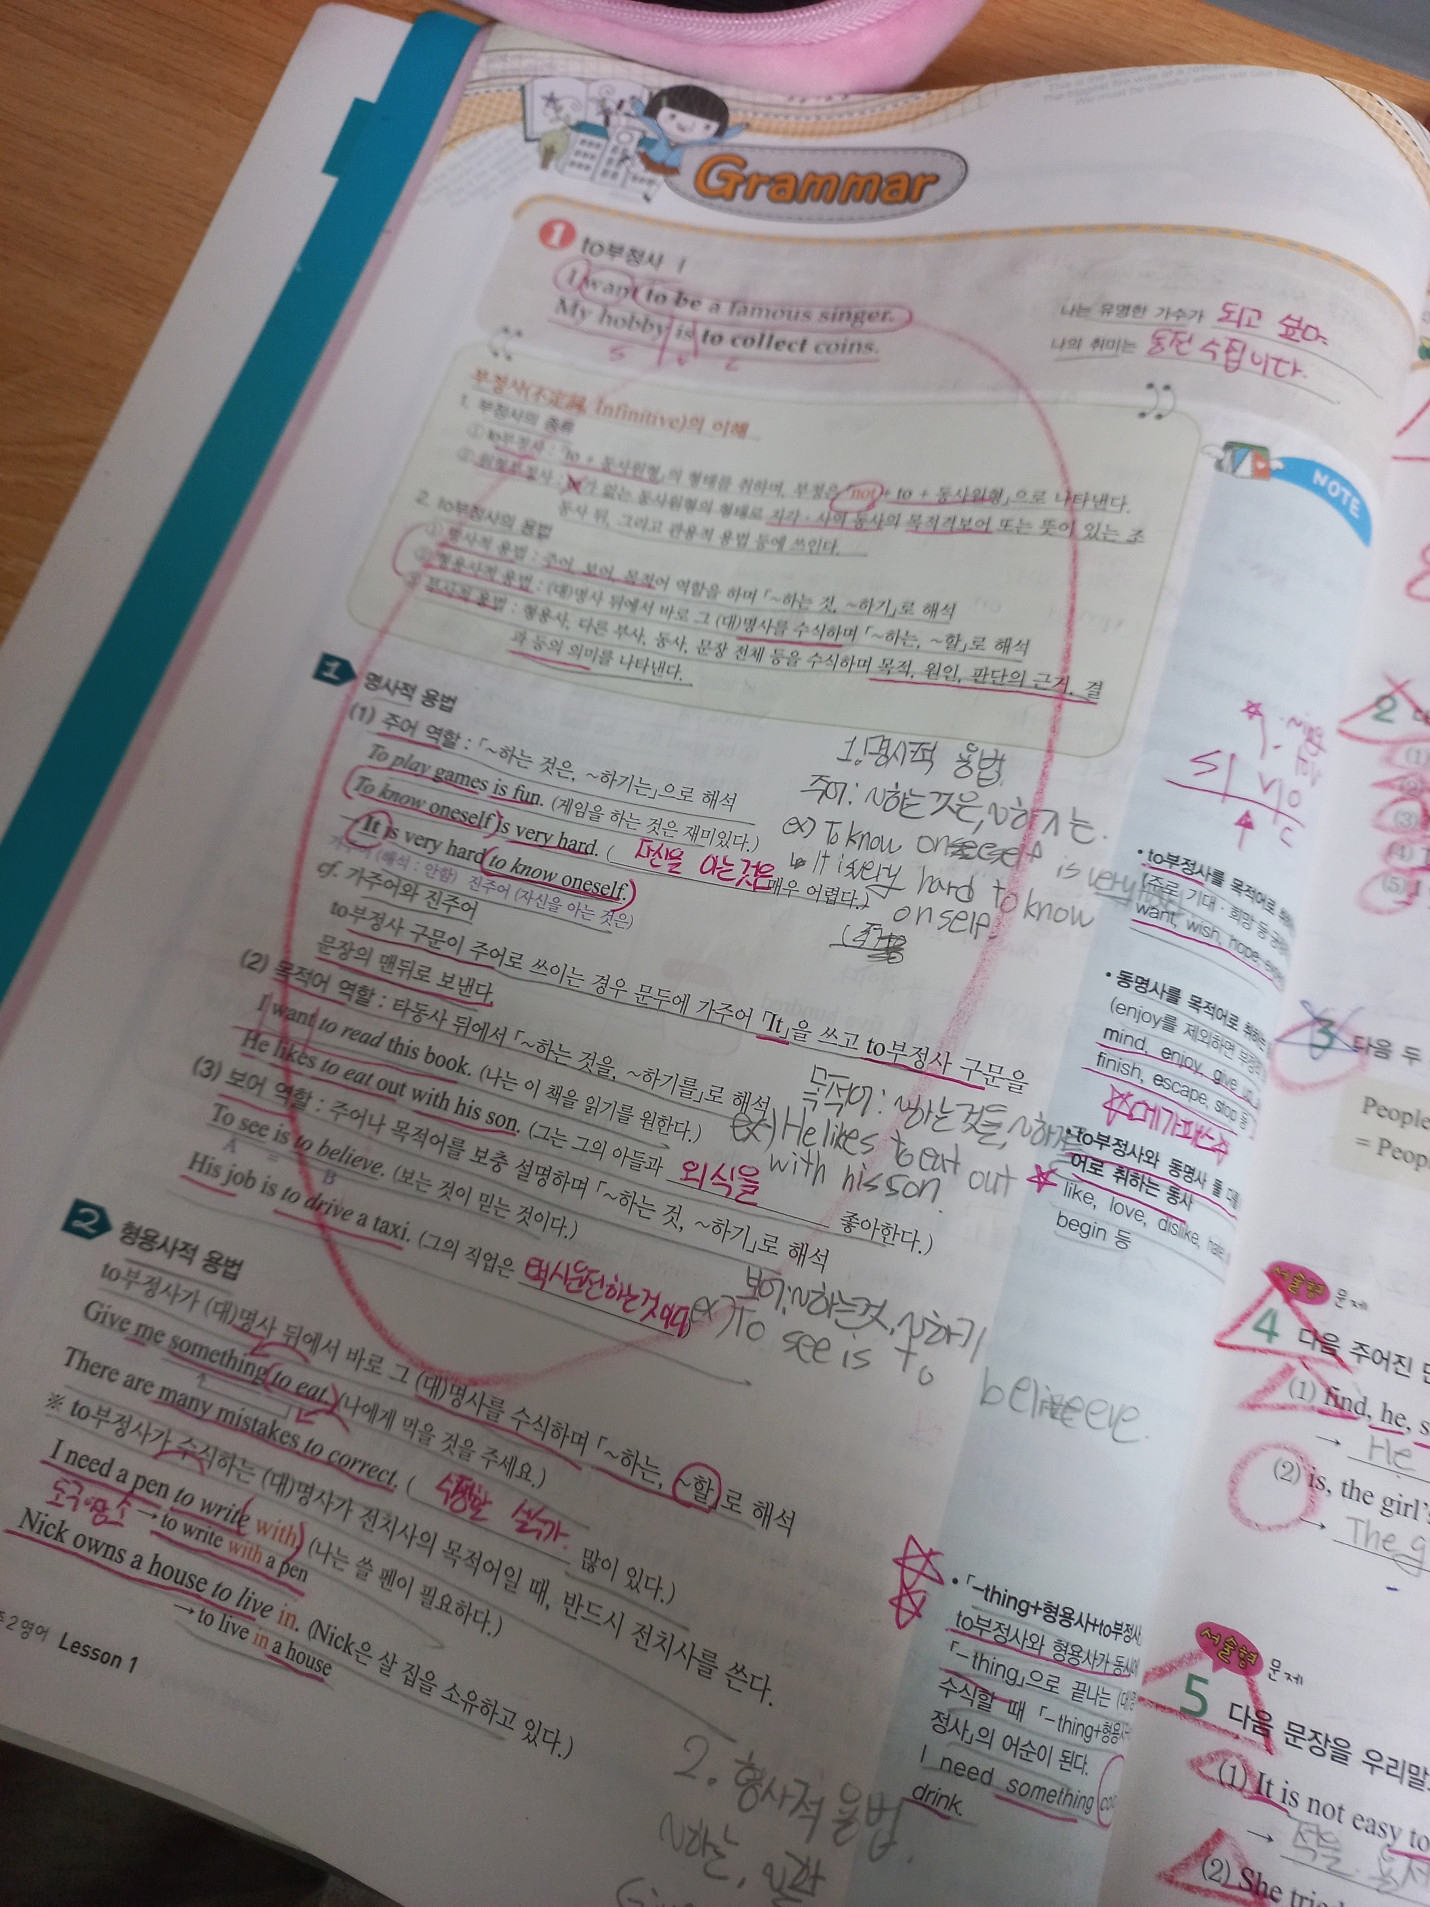 Grammar
1 to부정사 1
I want to be a famous singer.
나는 유명한 가수가 되고 싶다.
My hobby is to collect coins.
나의 취미는 동전 수집이다.
S V C
부정사(不定詞, Infinitive)의 이해
1. 부정사의 종류
① to부정사 : 「to + 동사원형」의 형태를 취하며, 부정은 「not + to + 동사원형」으로 나타낸다.
② 원형부정사 : to가 없는 동사원형의 형태로 지각·사역 동사의 목적격보어 또는 뜻이 있는 조
동사 뒤, 그리고 관용적 용법 등에 쓰인다.
2. to부정사의 용법
① 명사적 용법 : 주어, 보어, 목적어 역할을 하며 「~하는 것, ~하기」로 해석
② 형용사적 용법 : (대)명사 뒤에서 바로 그 (대)명사를 수식하며 「~하는, ~할」로 해석
③ 부사적 용법 : 형용사, 다른 부사, 동사, 문장 전체 등을 수식하며 목적, 원인, 판단의 근거, 결
과 등의 의미를 나타낸다.
1 명사적 용법
(1) 주어 역할 : 「~하는 것은, ~하기는」으로 해석
To play games is fun. (게임을 하는 것은 재미있다.)
To know oneself is very hard. ( 자신을 아는것은 매우 어렵다.)
It is very hard to know oneself.
가주어 (해석 : 안함) 진주어 (자신을 아는 것은)
cf. 가주어와 진주어
to부정사 구문이 주어로 쓰이는 경우 문두에 가주어 「It」을 쓰고 to부정사 구문을
문장의 맨뒤로 보낸다.
(2) 목적어 역할 : 타동사 뒤에서 「~하는 것을, ~하기를」로 해석
I want to read this book. (나는 이 책을 읽기를 원한다.)
He likes to eat out with his son. (그는 그의 아들과 외식을 좋아한다.)
(3) 보어 역할 : 주어나 목적어를 보충 설명하며 「~하는 것, ~하기」로 해석
To see is to believe. (보는 것이 믿는 것이다.)
A = B
His job is to drive a taxi. (그의 직업은 택시운전하는것이다)
2 형용사적 용법
to부정사가 (대)명사 뒤에서 바로 그 (대)명사를 수식하며 「~하는, ~할」로 해석
Give me something to eat. (나에게 먹을 것을 주세요.)
There are many mistakes to correct. ( 수정할 실수가 많이 있다.)
※ to부정사가 수식하는 (대)명사가 전치사의 목적어일 때, 반드시 전치사를 쓴다.
I need a pen to write with. (나는 쓸 펜이 필요하다.)
→ to write with a pen
Nick owns a house to live in. (Nick은 살 집을 소유하고 있다.)
→ to live in a house
2 영어 Lesson 1
1. 명사적 용법
주어: ~하는것은, ~하기는.
ex) To know oneself is very
It is very hard to know
onself.
목적어: ~하는것을, ~하기를
ex) He likes to eat out
with his son.
보어: ~하는것, ~하기
ex) To see is to
believe.
2. 형사적 용법.
~하는, ~할
NOTE
S V O
C
• to부정사를 목적어로
(주로 기대·희망 등
want, wish, hope,
• 동명사를 목적어로 취하는
(enjoy를 제외하면
mind, enjoy, give
finish, escape, stop 등
메가패스
• to부정사와 동명사 둘 다를
어로 취하는 동사
like, love, dislike, hate
begin 등
• 「-thing+형용사+to부정사
to부정사와 형용사가 동시에
「-thing」으로 끝나는
수식할 때 「-thing+형용사
정사」의 어순이 된다.
I need something
drink.
2
(1)
(2)
(3)
(4)
(5)
3 다음 두
People
= Peop
서술형 문제
4 다음 주어진
(1) find, he,
→ He
(2) is, the girl's
→ The g
서술형 문제
5 다음 문장을 우리말
(1) It is not easy to
→ 적을
(2) She tried